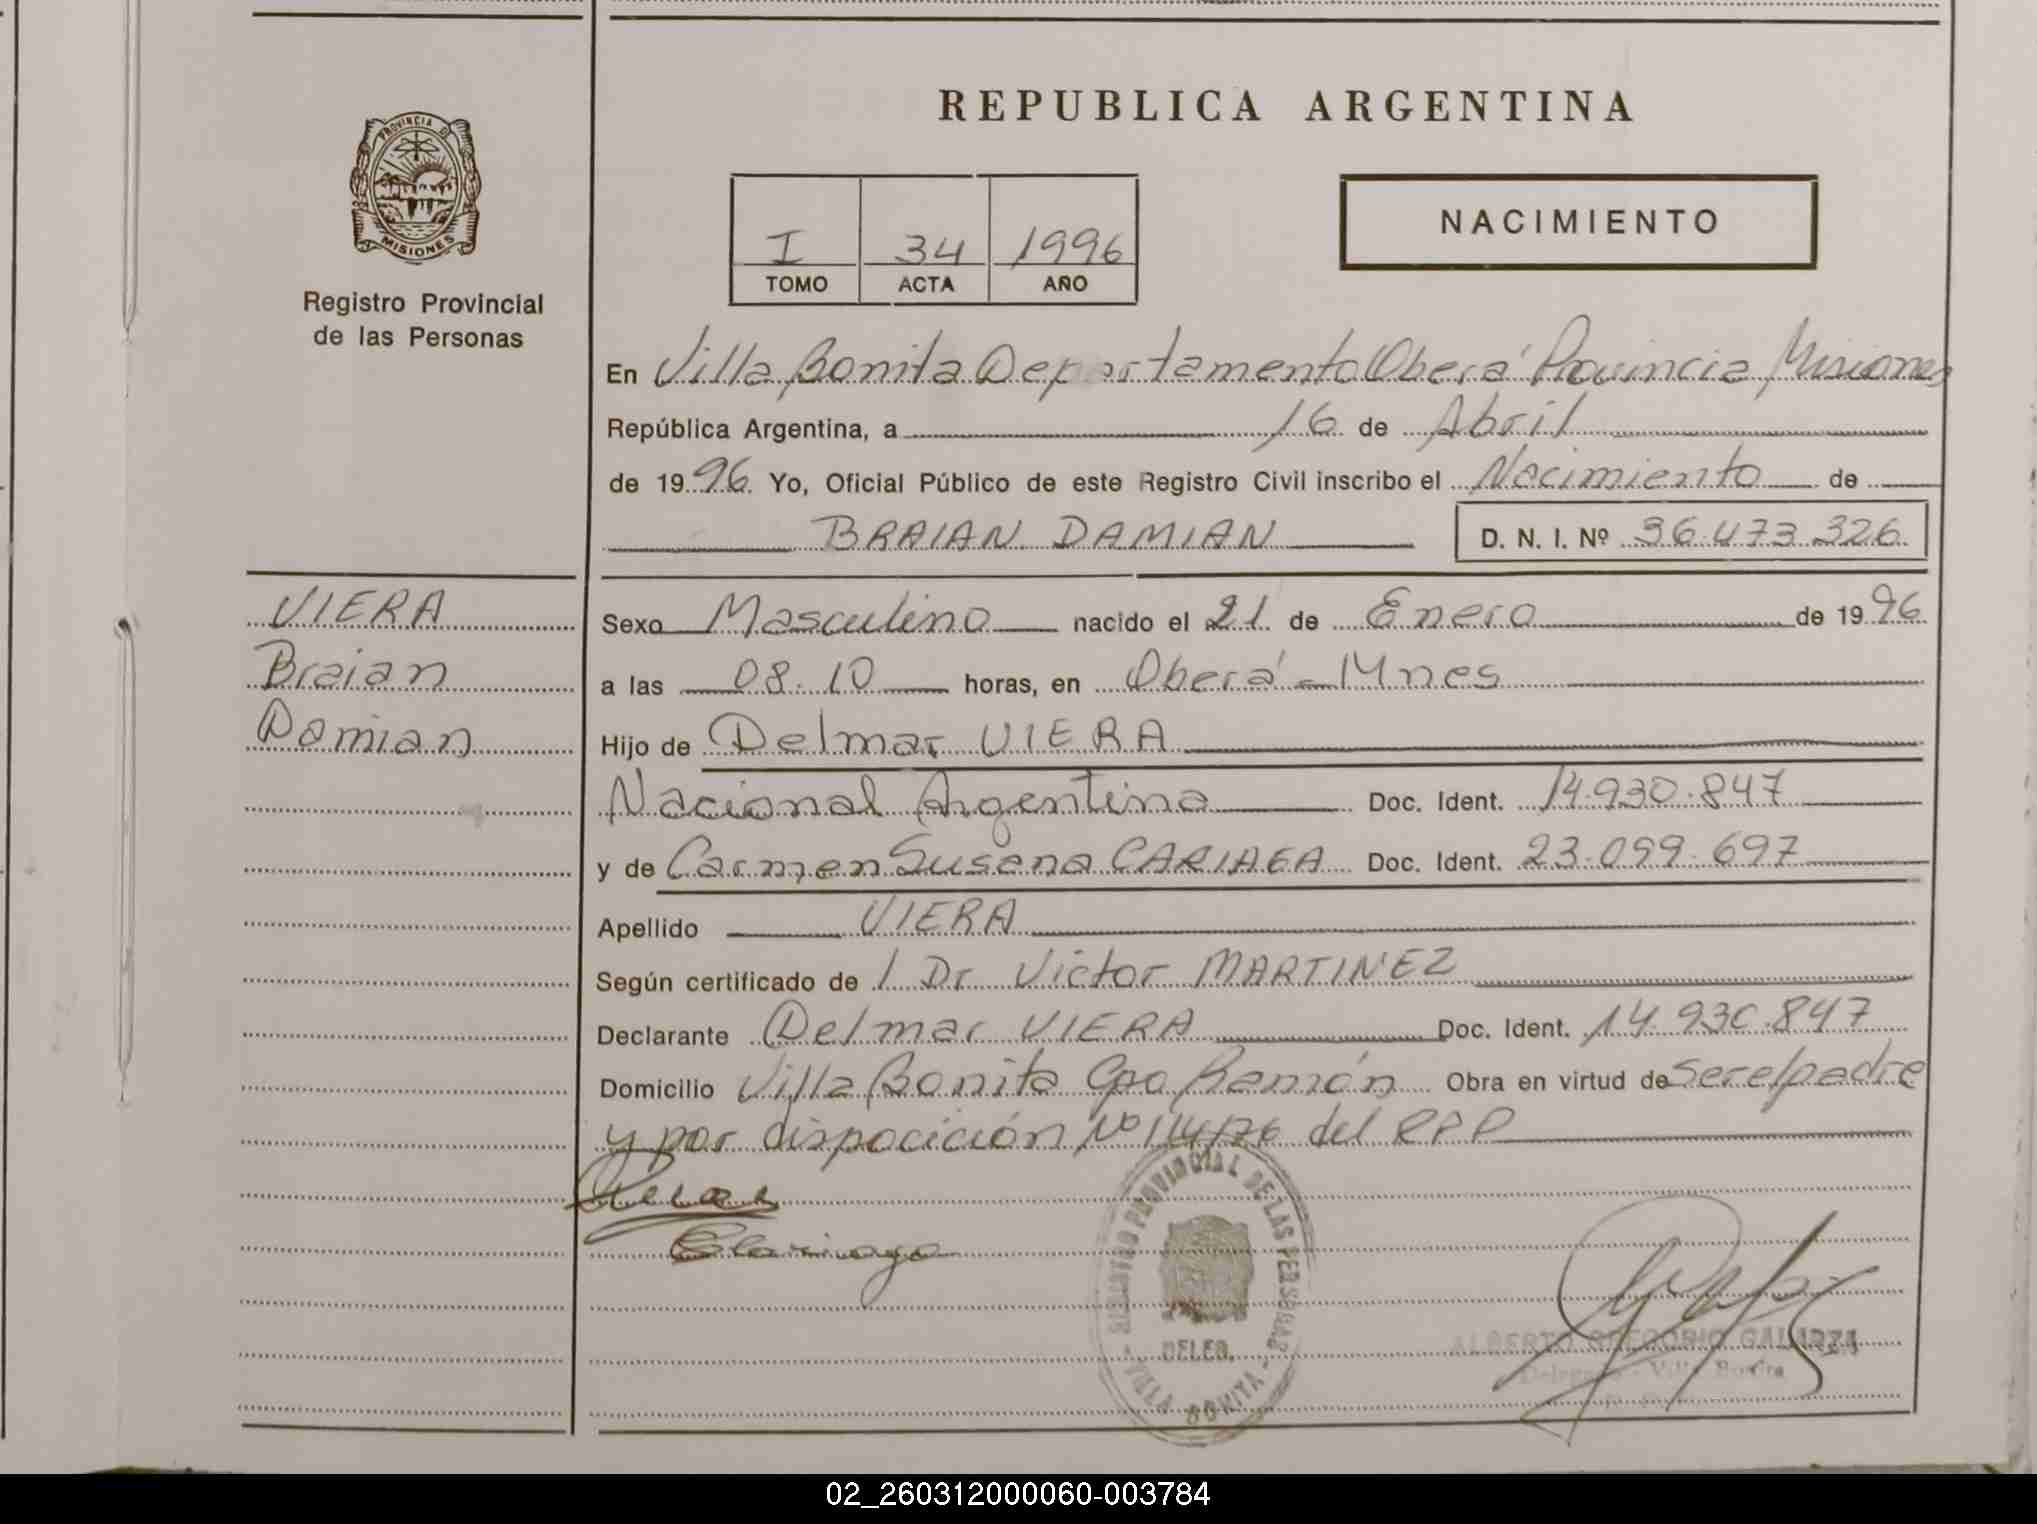 REPUBLICA ARGENTINA
PROVINCIA D
MISIONES
Registro Provincial
de las Personas
I 34 1996
TOMO ACTA AÑO
NACIMIENTO
En Villa Bonita Departamento Oberá Provincia Misiones
República Argentina, a 16 de Abril
de 1996 Yo, Oficial Público de este Registro Civil inscribo el Nacimiento de
BRAIAN DAMIAN D. N. I. Nº 36.473.326
VIERA
Braian
Damian
Sexo Masculino nacido el 21 de Enero de 1996
a las 08.10 horas, en Oberá - Mnes
Hijo de Delmar VIERA
Nacional Argentina Doc. Ident. 14.930.847
y de Carmen Susana Doc. Ident. 23.099.697
Apellido VIERA
Según certificado de / Dr Victor MARTINEZ
Declarante Delmar VIERA Doc. Ident. 14.930.847
Domicilio Villa Bonita Gpo Ramón Obra en virtud de ser el padre
y por dispocición Nº 114/76 del RPP
REGISTRO PROVINCIAL DE LAS PERSONAS
DELEG.
- VILLA BONITA -
ALBERTO GREGORIO GALARZA
Delegado - Villa Bonita
02_260312000060-003784